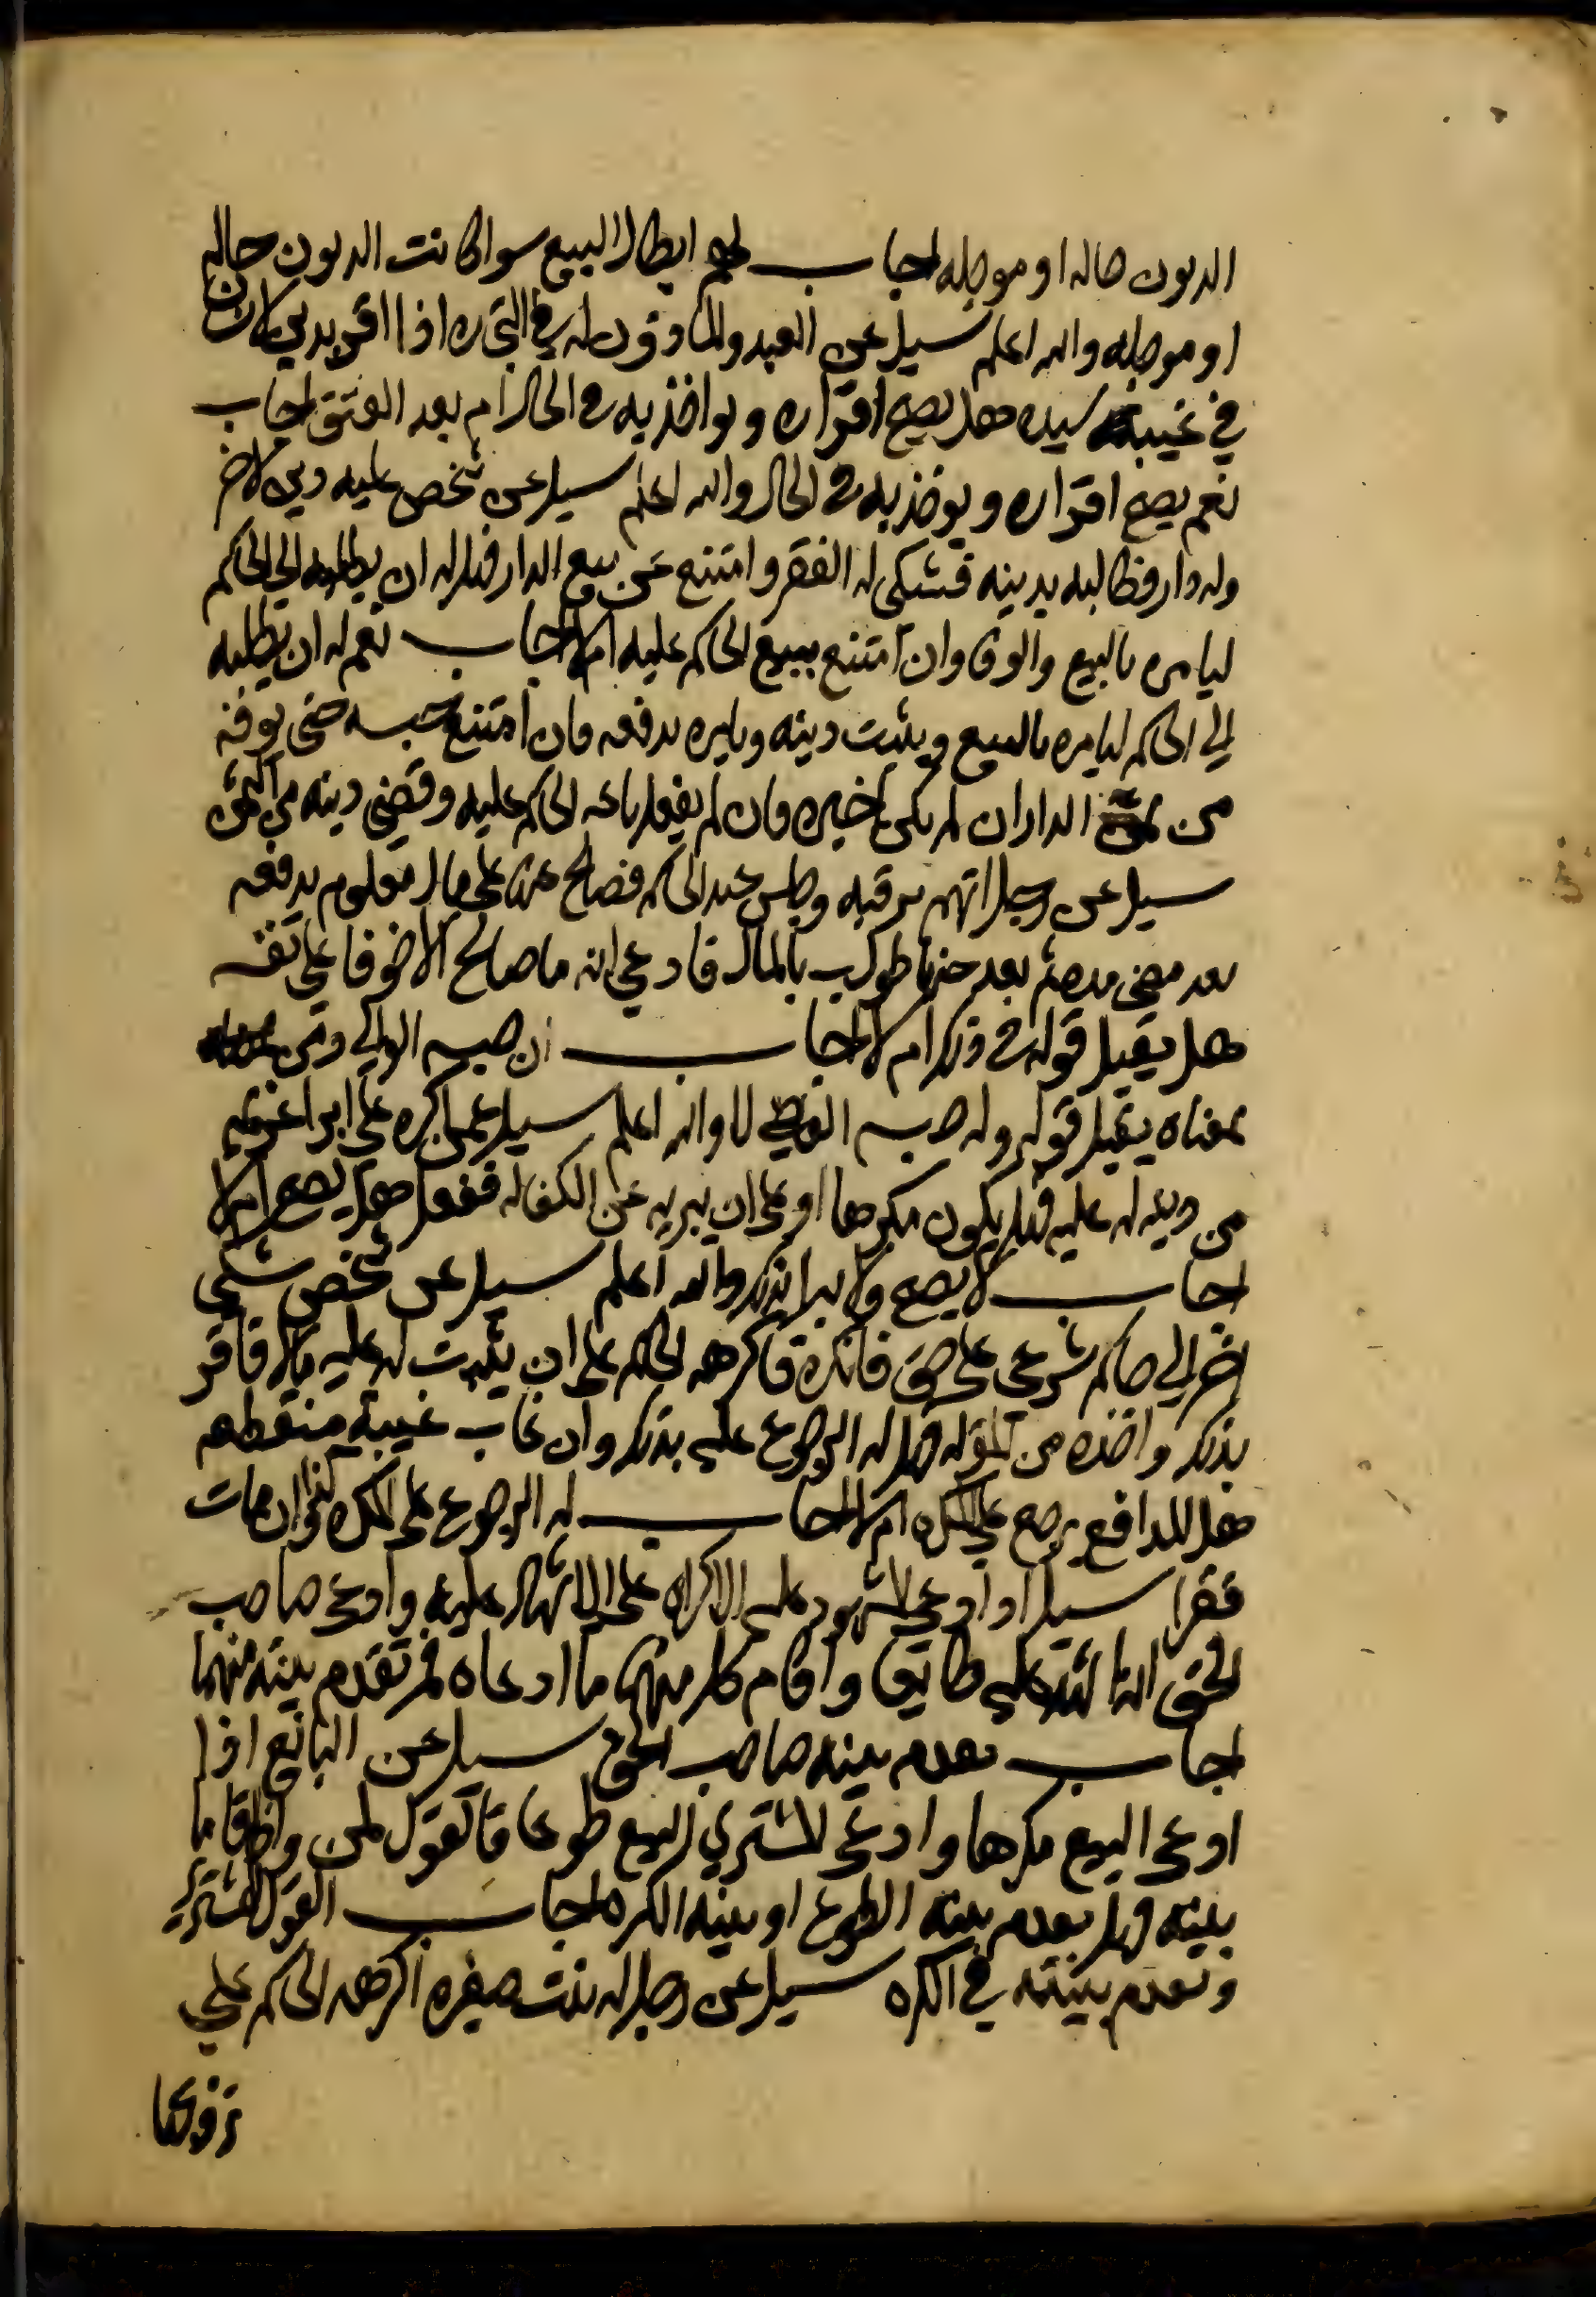 الديون حاله او موجله اجاب لهم ابطال البيع سوا كانت الديون حاله
او موجله والله اعلم سيل عن العبد والماذون له في التجاره اذا اقر بدين كان
في غيبة سيده هل يصح اقراره ويواخذ به في الحال ام بعد العتق اجاب
نعم يصح اقراره ويوخذ به في الحال والله اعلم سيل عن شخص عليه دين لاخر
وله دار فطالبه بدينه فشكى له الفقر وامتنع عن بيع الدار فهل له ان يطلبه الي الحاكم
ليامره بالبيع والوفا وان امتنع يبيع الحاكم عليه ام لا اجاب نعم له ان يطلبه
الي الحاكم ليامره بالبيع ويثبت دينه ويامره بدفعه فان امتنع حبسه حتى يوفيه
من ثمن الدار ان لم يكن غيره فان لم يفعل باعه الحاكم عليه وقضي دينه من الثمن
سيل عن رجل اتهم بسرقه وحبس عند الحاكم فصالح عنها على مال معلوم يدفعه
بعد مضي مده ثم بعد طولب بالمال فادعي انه ما صالح الا خوفا على نفسه
هل يقبل قوله في ذلك ام لا اجاب ان حبسه الوالي ومن
بمعناه يقبل قوله وان حبسه القاضي لا والله اعلم سيل عمن اكره علي ابرا غريمه
من دين له عليه فهل يكون مكرها او على ان يبريه عن الكفاله ففعل هل يصح ام لا
اجاب لا يصح ولا يبرا بذلك والله اعلم سيل عن شخص شكي
اخر الي حاكم شرعي على حق فانكره فاكرهه الحاكم على ان يثبت له عليه مال فاقر
بذلك واخذه من المقر له فهل له الرجوع عليه بذلك وان غاب غيبة منقطعه
هل للدافع يرجع علي المكره ام لا اجاب له الرجوع على المكره وان مات
فقرا سيل اذا ادعي المشهود عليه الاكراه على الاشهاد عليه وادعى صاحب
الحق انه اشهد عليه طايعا واقام كل منهما ما ادعاه فمن تقدم بينته منهما
اجاب تقدم بينه صاحب الحق سيل عن البائع اذا
ادعى البيع مكرها وادعى المشتري البيع طوعا فالقول لمن واذا اقاما
بينه فهل تقدم بينه الطوع او بينه الكره اجاب القول للمشتري
وتقدم بينته في الكره سيل عن رجل له بنت صغيره اكرهه الحاكم علي
تزويجها